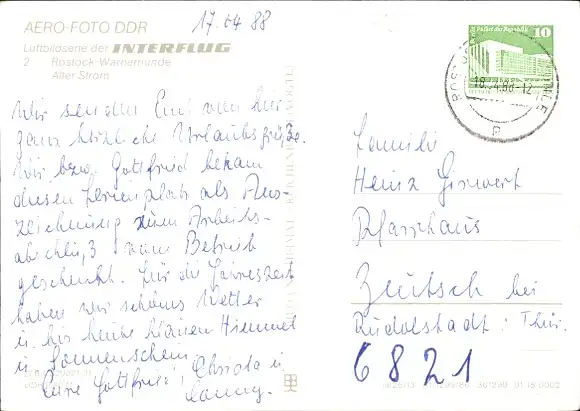 AERO-FOTO DDR
17.04 88
Luftbildserie der INTERFLUG
2 Rostock-Warnemünde
Alter Strom
Wir senden Euch von hier
ganz herzliche Urlaubsgrüße.
Wir bzw. Gottfried bekam
diesen Ferienplatz als Aus-
zeichnung zum Arbeits-
abschluß vom Betrieb
geschenkt. Für die Jahreszeit
haben wir schönes Wetter
u. bis heute blauen Himmel
u. Sonnenschein.
Eure Gottfried, Christa u.
Palast der Republik 10
18.-4.88-12
Familie
Heinz
Pfarrhaus
Zeutsch bei
Rudolstadt: Thür.
6821